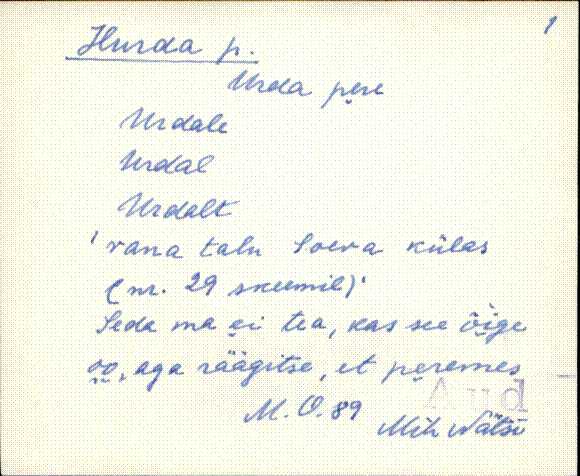 1
Hurda p.
Urda pere
Urdale
Urdal
Urdalt
'vana talu Soeva külas
(nr. 29 skeemil)'
Seda ma ei tea, kas see õige
oo, aga räägitse, et peremes
Aud
M. O. 89
Mih Nätsi